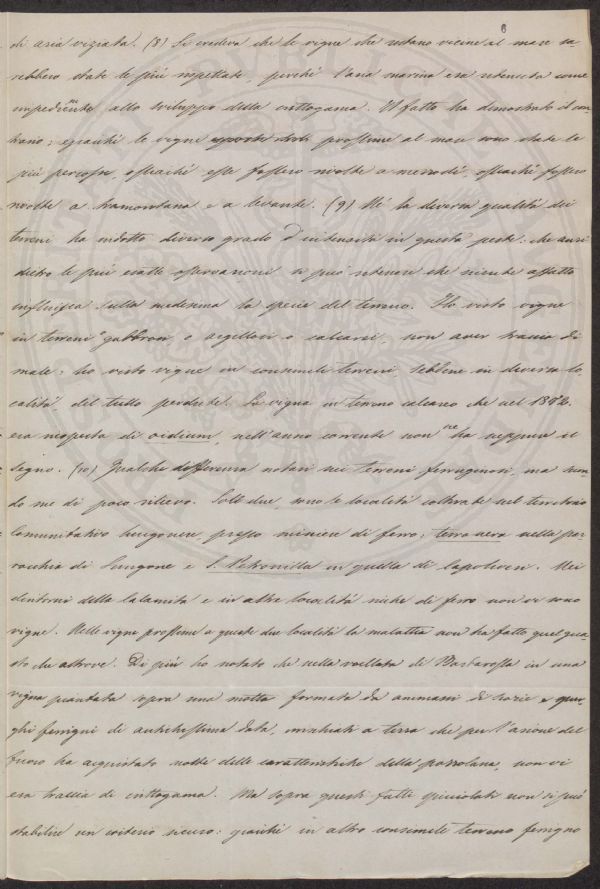 6
di aria viziata. (8) Si credeva che le vigne che restano vicine al mare sa
rebbero state le più rispettate, perchè l'aria marina era ritenuta come
impedimento allo sviluppo della crittogama. Il fatto ha dimostrato il con
trario; giacchè le vigne prossime al mare sono state le
più percosse, ossiachè esse fossero rivolte a mezzodì, ossiachè fossero
rivolte a tramontana e a levante. (9) Nè la diversa qualità dei
terreni ha indotto diverso grado d'intensità in questa peste: che anzi
dietro le più esatte osservazioni si può ritenere che niente affatto
influisca sulla medesima la specie del terreno. Ho visto vigne
in terreni o argillosi o calcarei, non aver traccia di
male: ho visto vigne in consimili terreni, sebbene in diversa lo
calità, del tutto perdute. La vigna in terreno calcareo che nel 1852.
era zeppa di oidium, nell'anno corrente non ne ha neppure il
segno. (10) Qualche differenza notai nei terreni ferruginosi, ma secon
do me di poco rilievo. Sole due, sono le località coltivate nel territorio
Comunitativo lungonese, presso miniere di ferro; terra nera nella par
rocchia di Lungone e S. Petronilla in quella di Capoliveri. Nei
dintorni della Calamita e in altre località ricche di ferro non vi sono
vigne. Nelle vigne prossime a queste due località la malattia non ha fatto quel gua
sto che altrove. Di più ho notato che nella vallata di Barbarossa in una
vigna piantata sopra una motta formata da ammassi di scorie e
ghi ferrigni di antichissima data, mischiati a terra che per l'azione del
fuoco ha acquistato molte delle caratteristiche della pozzolana, non vi
era traccia di crittogama. Ma sopra questi fatti speciali non si può
stabilire un criterio sicuro: giacchè in altro consimile terreno ferrigno